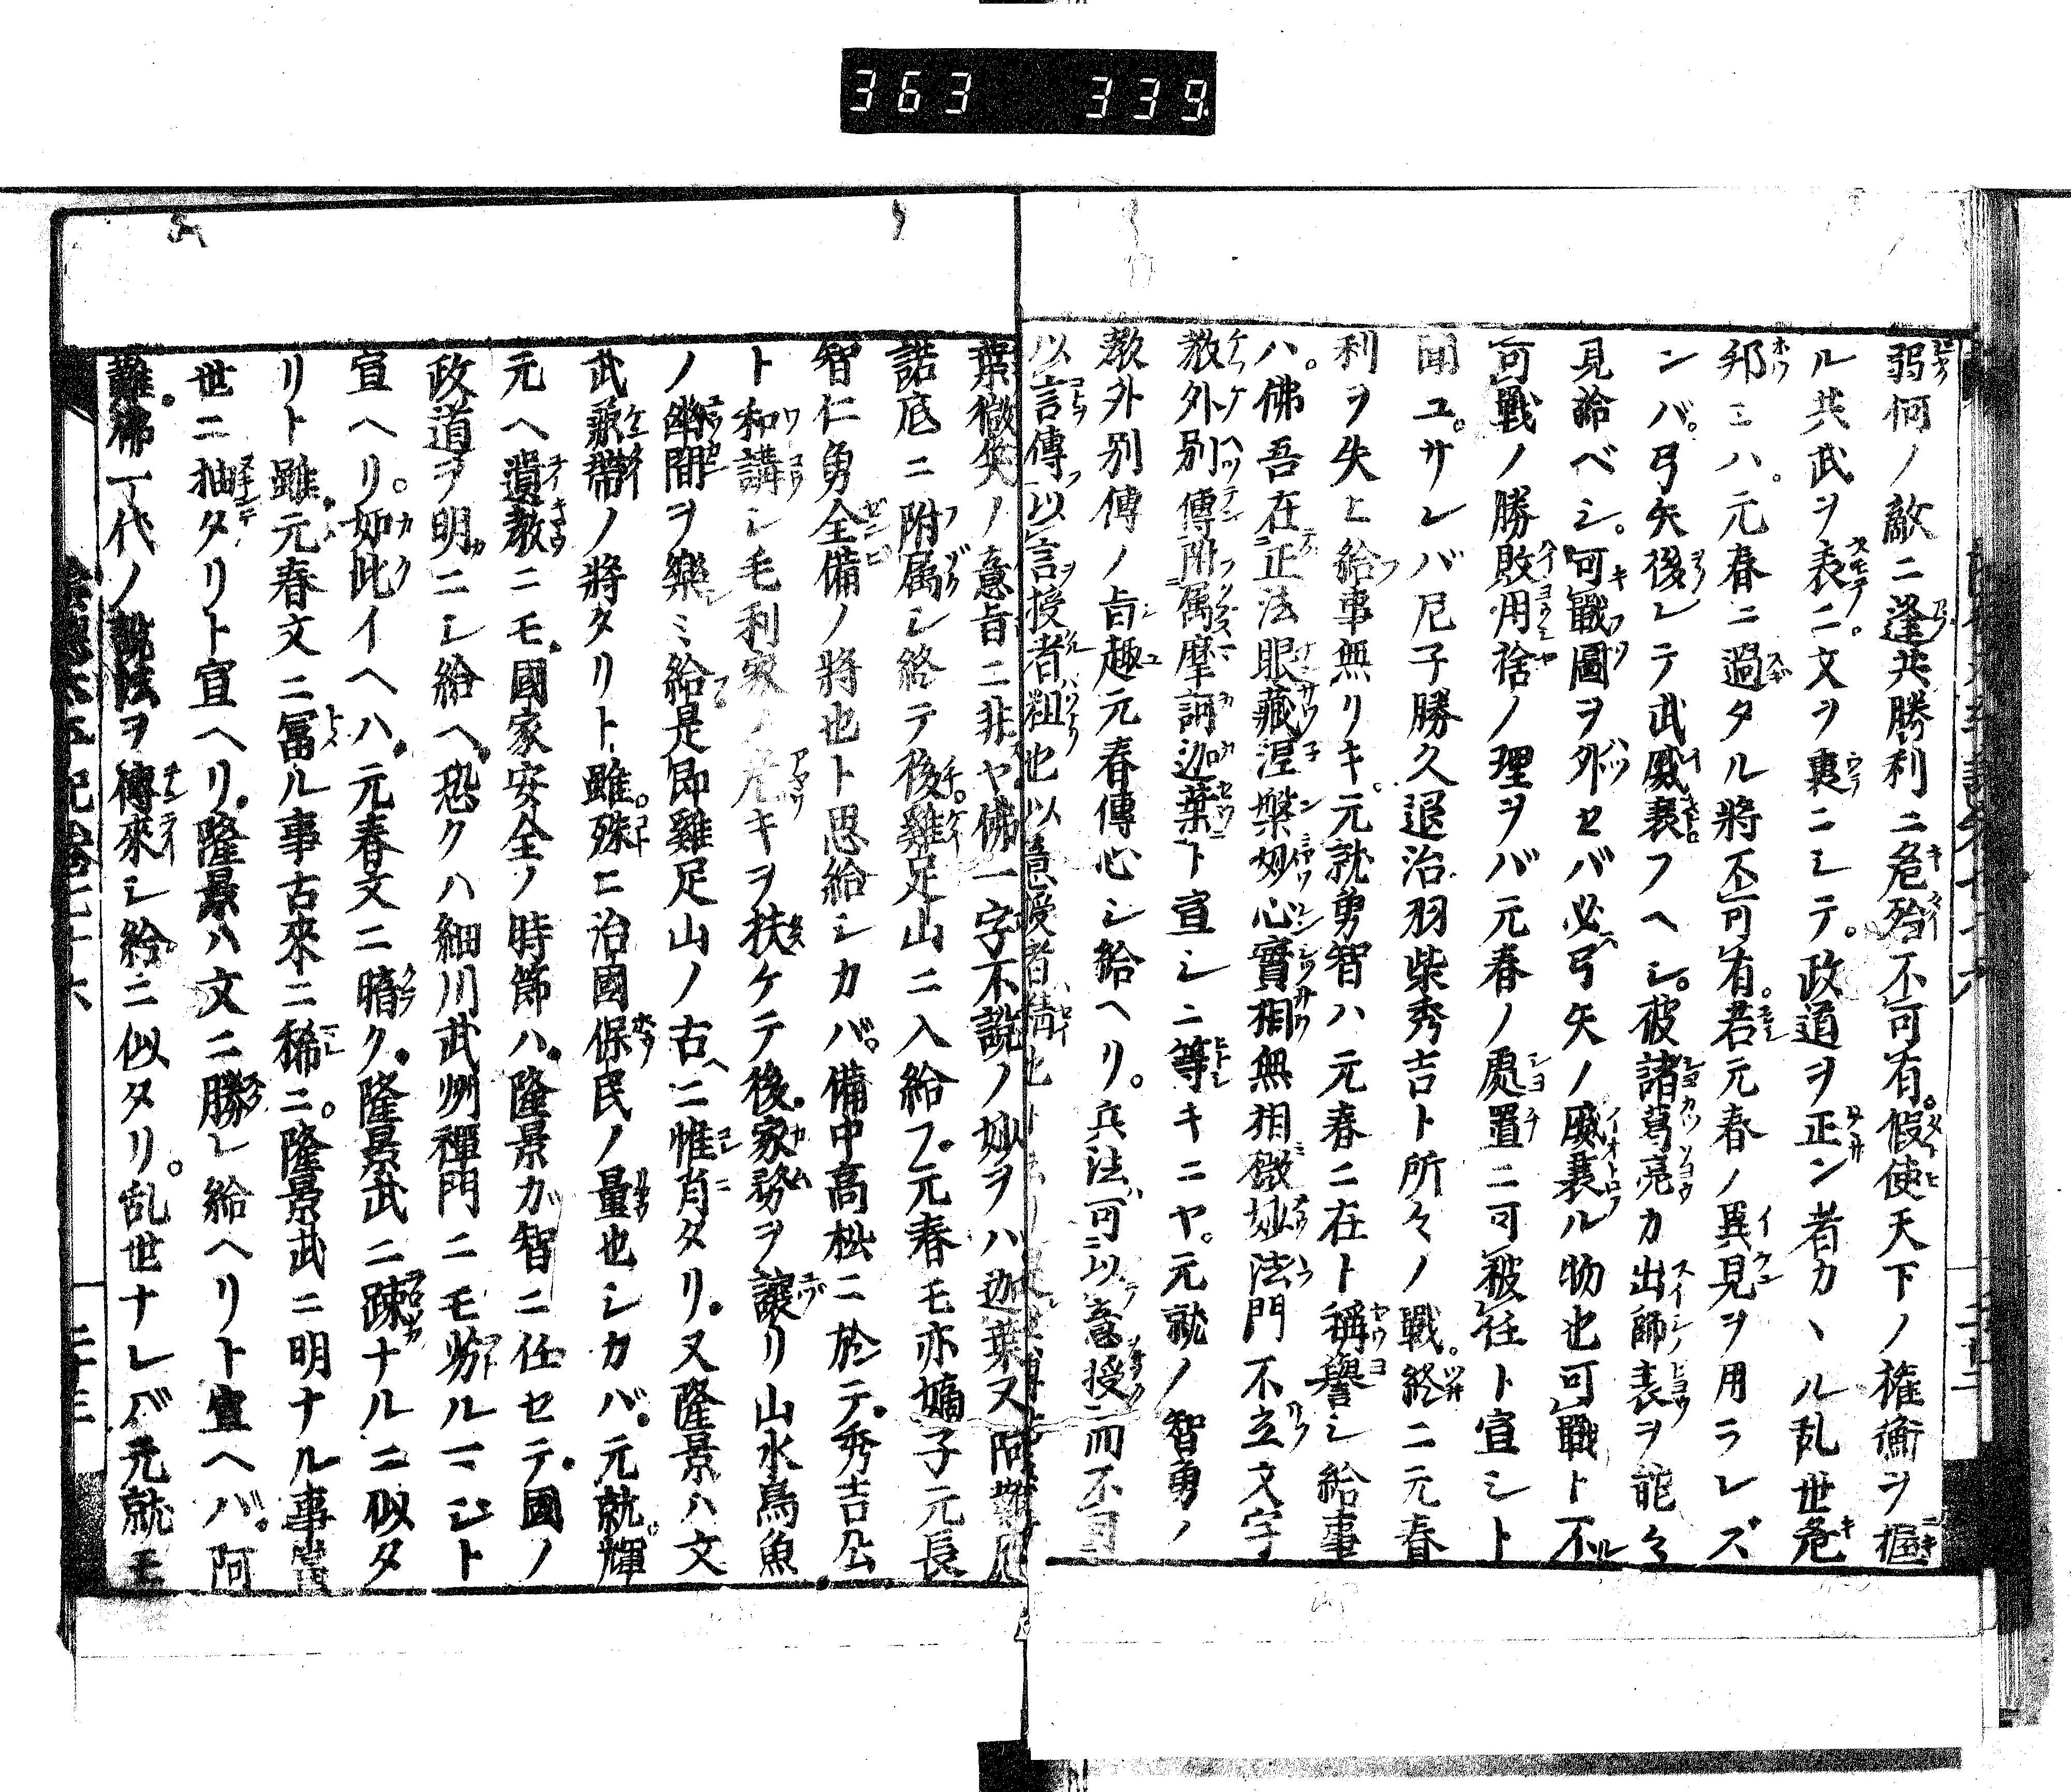 363 339
弱何ノ敵ニ逢共勝利ニ危殆不可有。假使天下ノ権衡ヲ握
ル共武ヲ表ニ。文ヲ裏ニシテ。政道ヲ正ン者カヽル乱世危
邦ニハ。元春ニ過タル將不可有。若元春ノ異見ヲ用ラレズ
ンバ。弓矢後レテ武威衰フヘシ。彼諸葛亮カ出師表ヲ能々
見給ベシ。可戰圖ヲ外セバ必弓矢ノ威衰ル物也可戰ト不
可戰ノ勝敗用捨ノ理ヲバ元春ノ處置ニ可被任ト宣シト
聞ユ。サレバ尼子勝久退治羽柴秀吉ト所々ノ戰。終ニ元春
利ヲ失ヒ給事無リキ。元就勇智ハ元春ニ在ト稱譽シ給事
ハ。佛吾在正法眼藏涅槃妙心實相無相微妙法門不立文字
教外別傳附属摩訶迦葉ト宣シニ等キニヤ。元就ノ智勇ノ
教外別傳ノ旨趣元春傳心シ給ヘリ。兵法可以意授而不可
以言傳以言授者粗也以意授者精也
葉微笑ノ意旨ニ非ヤ佛一字不説ノ妙ヲハ迦葉又阿難
諾底ニ附属シ終テ後。雞足山ニ入給フ。元春モ亦嫡子元長
智仁勇全備ノ將也ト思給シカバ。備中高松ニ於テ。秀吉公
ト和講シ毛利家ノ危キヲ扶ケテ後。家務ヲ讓リ山水鳥魚
ノ幽閒ヲ樂ミ給是即雞足山ノ古ヘニ惟肖タリ。又隆景ハ文
武兼帶ノ將タリト雖。殊ニ治國保民ノ量也シカバ。元就。輝
元ヘ遺教ニモ。國家安全ノ時節ハ。隆景ガ智ニ任セテ。國ノ
政道ヲ明ニシ給ヘ。恐クハ細川武州禪門ニモ劣ルマシト
宣ヘリ。如此イヘハ。元春文ニ暗ク。隆景武ニ踈ナルニ似タ
リト雖。元春文ニ冨ル事古來ニ稀ニ。隆景武ニ明ナル事當
世ニ抽タリト宣ヘリ。隆景ハ文ニ勝レ給ヘリト宣ヘバ。阿
難。佛一代ノ説法ヲ傳來シ給ニ似タリ。乱世ナレバ元就モ
二十三